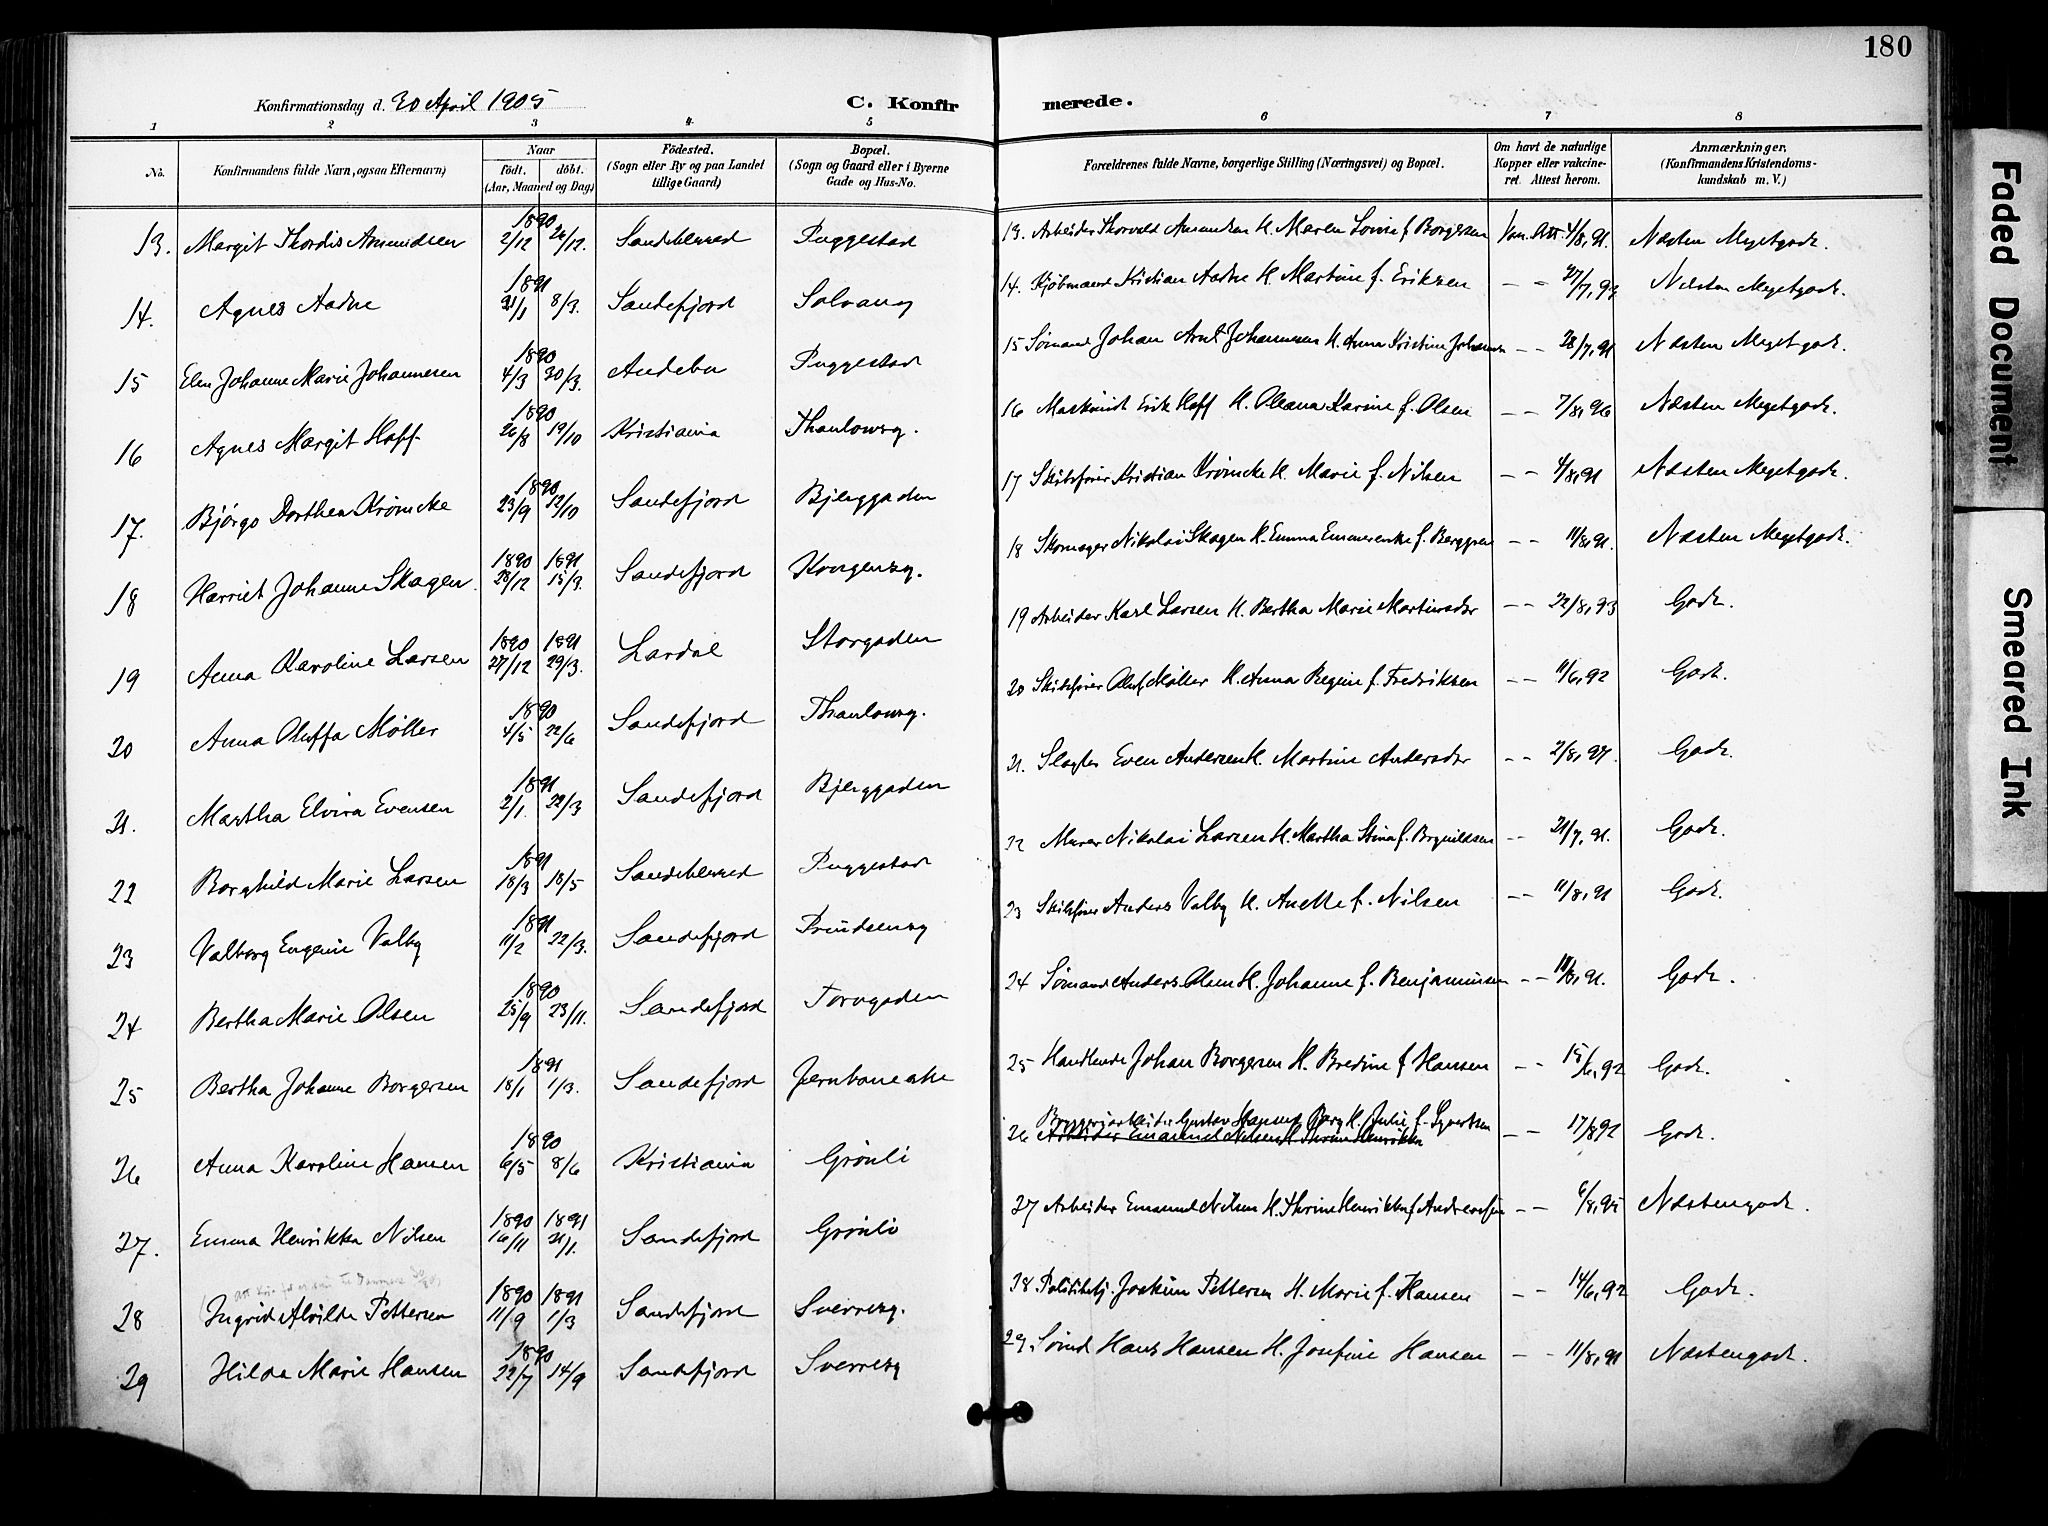 180
Konfirmationsdag d. 30 April 1905
C. Konfirmerede.
1 2 3 4 5 6 7 8
No.
Konfirmandens fulde Navn, ogsaa Efternavn)
Naar
født. døbt.
(Aar, Maaned og Dag)
Födested.
(Sogn eller By og paa Landet
tillige Gaard)
Bopæl.
(Sogn og Gaard eller i Byerne
Gade og Hus-No.
Forældrenes fulde Navne, borgerlige Stilling (Næringsvei) og Bopæl.
Om havt de naturlige
Kopper eller vakcine-
ret. Attest herom.
Anmærkninger.
(Konfirmandens Kristendoms-
kundskab m. V.)
13. Margit Thordis Amundsen 1890 2/12 26/12. Sandeherred Puggestad 13. Arbeider Thorvald Amundsen H. Maren Lovise f. Borgersen Vac. Att. 4/8, 91. Næsten Megetgodt.
14. Agnes Aadne 1891 21/1 8/3. Sandefjord Solvang 14. Kjøbmand Kristian Aadne H. Martine f. Eriksen - - 27/7, 93 Næsten Megetgodt.
15 Elen Johanne Marie Johannesen 1890 4/3 30/3. Andebu Puggestad 15 Sømand Johan Arnt Johannesen H. Anna Kristine Johansen - - 28/7, 91 Næsten Megetgodt.
16 Agnes Margit Hoff 1890 26/8 19/10 Kristiania Thaulowsg. 16 Maskinist Erik Hoff H. Oleana Karine f. Olsen - - 7/8, 96 Næsten Megetgodt.
17. Bjørgo Dorthea Krømcke 1890 23/9 12/10 Sandefjord Bjerggaden 17 Skibsfører Kristian Krømcke H. Marie f. Nilsen - - 4/8, 91 Næsten Megetgodt.
18 Harriet Johanne Skagen 1890 28/12 1891 15/3. Sandefjord Kongensg. 18 Skomager Nikolai Skagen H. Emma Emmerenke f. Berggren - - 11/8, 91. Næsten Megetgodt.
19 Anna Karoline Larsen 1890 27/12 1891 29/3. Lardal Storgaden 19 Arbeider Karl Larsen H. Bertha Marie Martinsdr - - 22/8, 93 Godt.
20 Anna Oluffa Møller 1890 4/5 22/6 Sandefjord Thaulowsg. 20 Skibsfører Oluf Møller H. Anna Regine f. Fredriksen - - 11/6, 92 Godt.
21. Martha Elvira Evensen 1891 2/1. 22/3 Sandefjord Bjerggaden 21. Slagter Even Andersen H. Martine Andersdr - - 2/8, 97. Godt.
22 Borghild Marie Larsen 1891 18/3 18/5 Sandeherred Puggestad 22 Murer Nikolai Larsen H. Martha Stina f. Brynildsen - - 21/7, 91. Godt.
23 Valborg Eugenie Valby 1891 11/2 22/3. Sandefjord Prindsensg 23 Skibsfører Anders Valby H. Anette f. Nilsen - - 11/8, 91 Godt.
24 Bertha Marie Olsen 1890 25/9 23/11. Sandefjord Torvgaden 24 Sømand Anders Olsen H. Johanne f. Benjaminsen - - 11/8, 91. Godt.
25 Bertha Johanne Borgersen 1891 18/1 1/3. Sandefjord Jernbanealle 25 Handlende Johan Borgersen H. Bredine f Hansen - - 15/6, 92 Godt.
26 Anna Karoline Hansen 1890 6/5 8/6 Kristiania Grønli 26 Bryggeriarbeider Gustav Hansen Berg H. Julie f. Syvertsen - - 17/8 92 Godt.
Arbeider Emanuel Nilsen H. Thrine Henrikka
27. Emma Henrikka Nilsen 1890 16/11 1891 21/1. Sandefjord Grønli 27 Arbeider Emanuel Nilsen H. Thrine Henrikka f Andreassen - - 6/8, 95 Næstengodt.
28 Ingrid Alvilde Pettersen 1890 11/9 1891 1/3 Sandefjord Sverresg. 28 Politibtj. Joakim Pettersen H. Marie f. Hansen - - 14/6, 92 Godt.
29 Hilda Marie Hansen 1890 22/7 14/9 Sandefjord Sverresg 29. Sømd Hans Hansen H. Josefine Hansen - - 11/8, 91 Næstengodt.
Faded Document
Smeared Ink